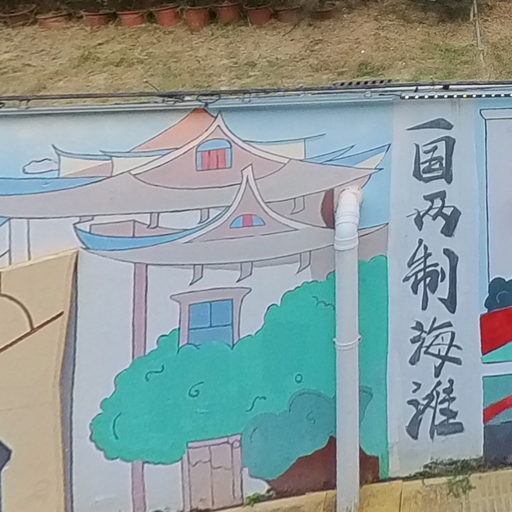 一国两制海滩